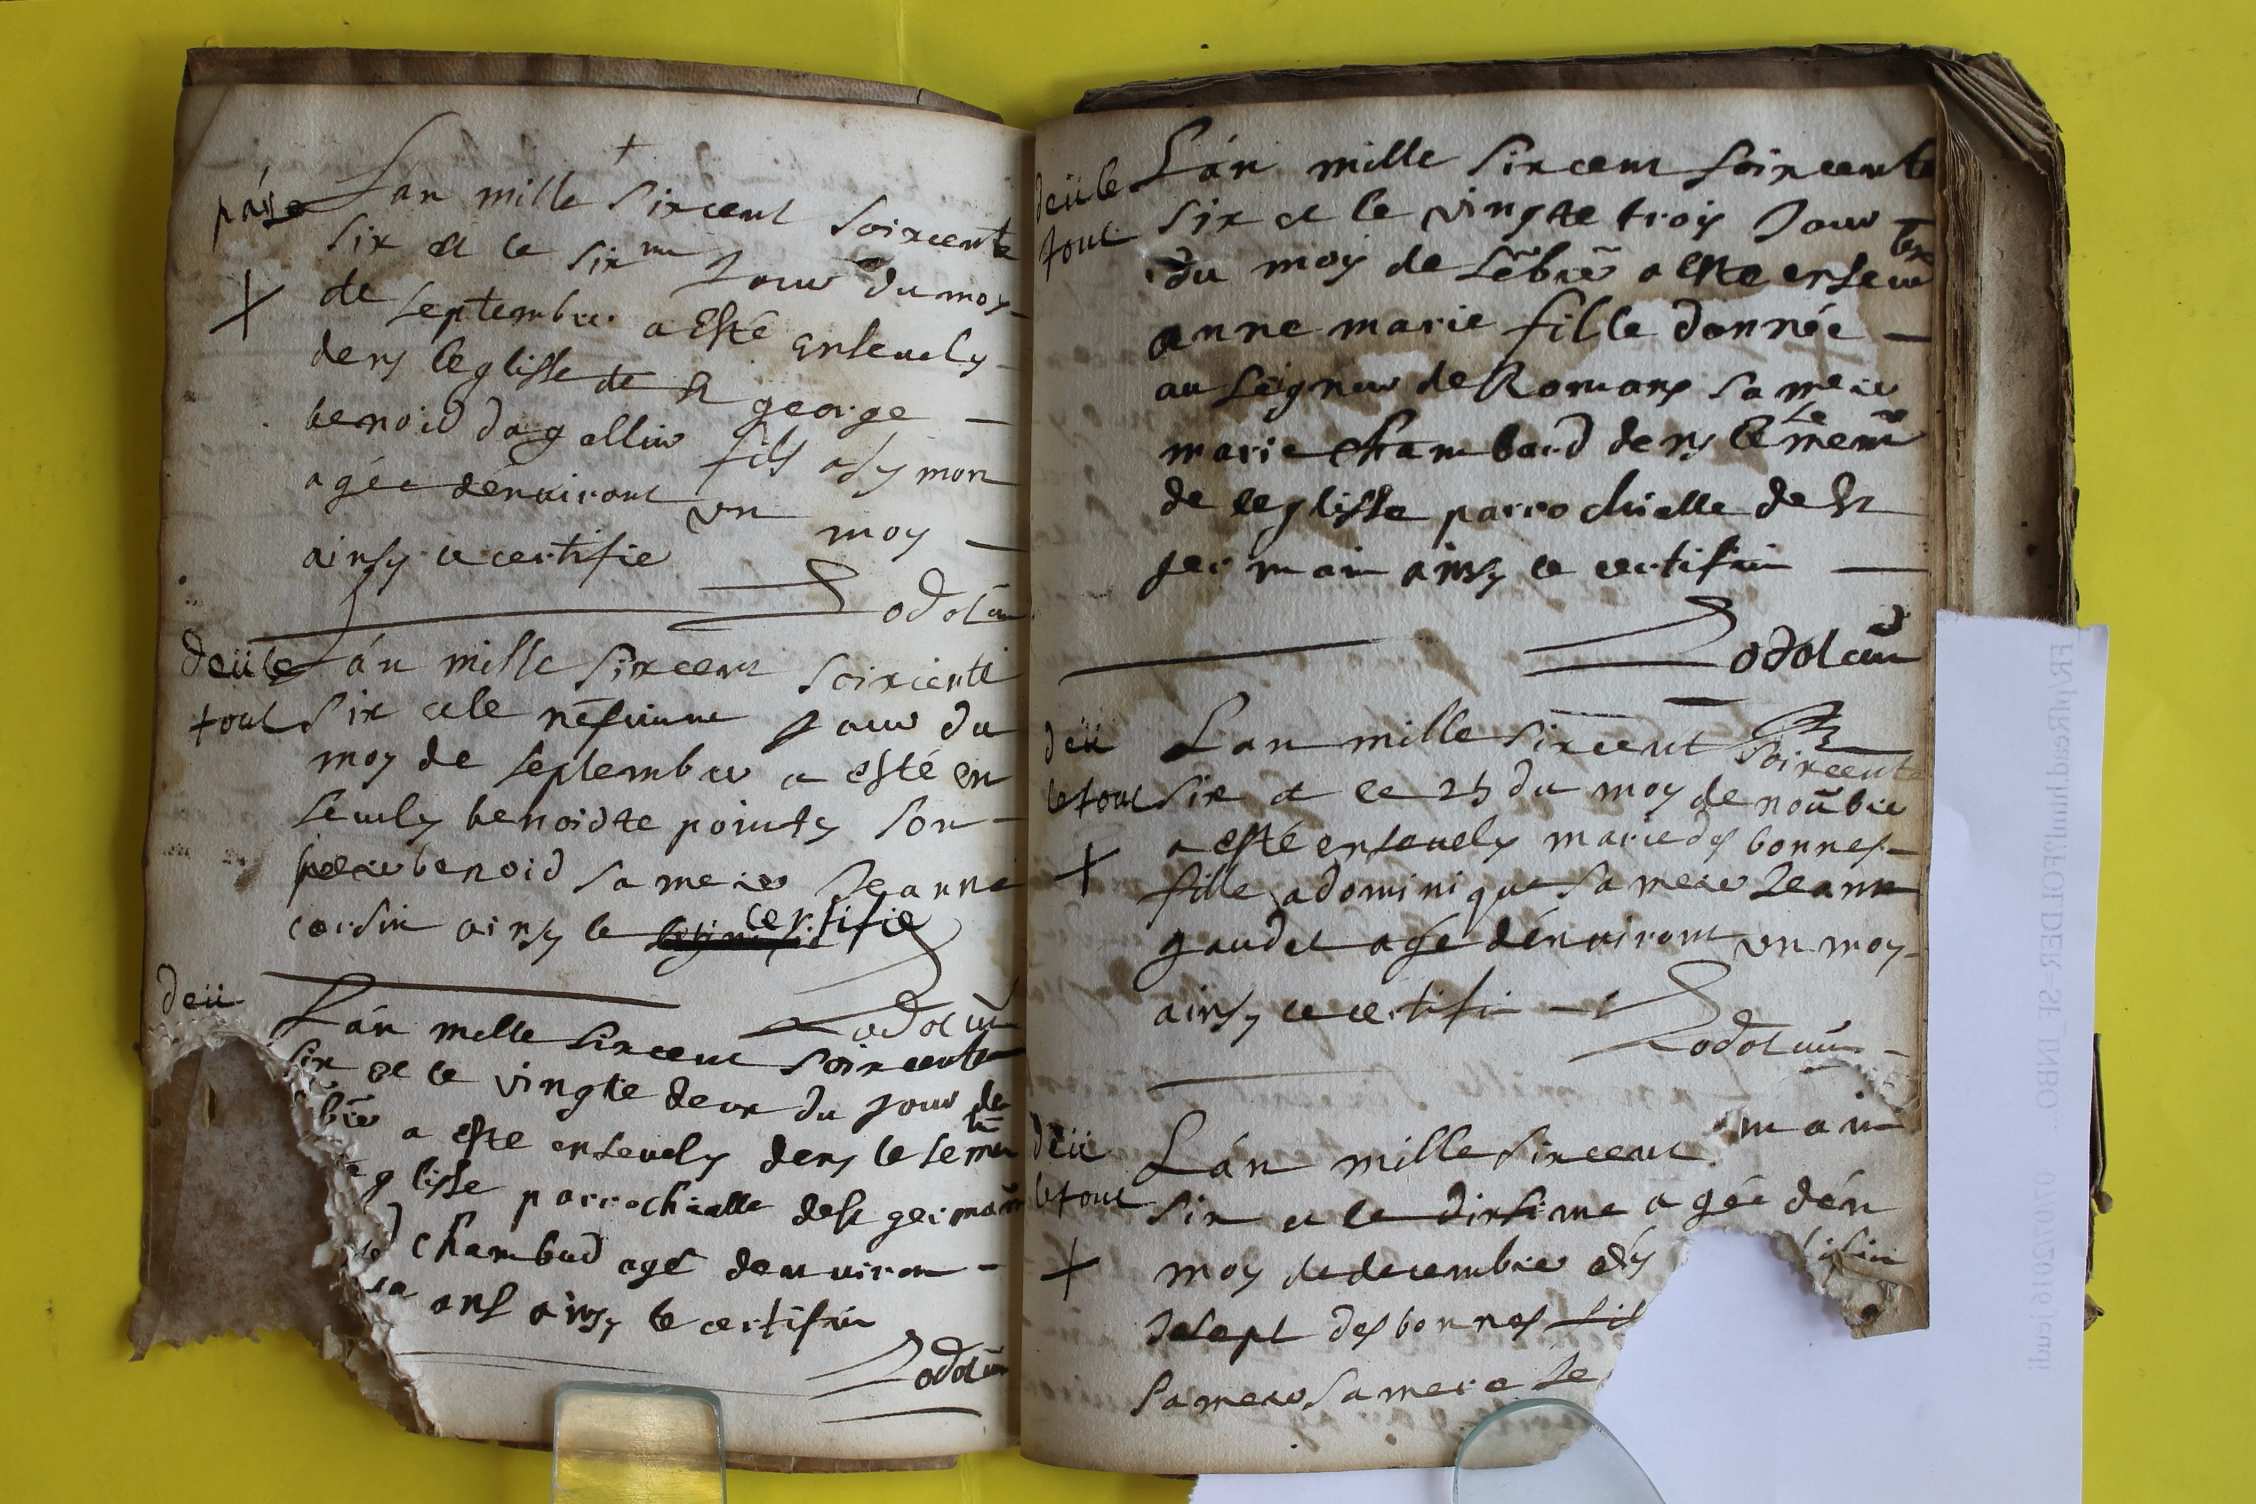 páye Lan mille sixcent soixcente
six et le sixme Jour du moy
de septembre a esté ensevely
dens leglisse de st george
benoid dagallier fils a symon
agée dénviront un moy
ainsy le certifie
Lodotun
deü le tout
Lán mille sixcent soixcente
six et le Jour du
moy de septembre a esté en
sevely benoidte pointy son
pere benoid sa mere Jeanne
cordin ainsy le certifie
Lodotun
deü
Lán mille sixcent soixcente
six et le vingte deux du Jour de
bre a este ensevely dens le seme
eglisse parrochialle de st germain
chambard agé denviron
ans ainsy le certifiie
Lodotun
deü le tout
Lán mille sixcent soixcente
six et le vingte trois Jour
du moy de a este enseve
anne marie fille donnée
au seigneur de Romans sa mere
marie chambard dens le seme
de leglisse parrochialle de st
germain ainsy le certifiie
Lodotun
deü le tout
Lan mille sixcent soixcente
six et le 25 du moy de noūbre
a esté ensevely marie des bonnes
fille a dominique sa mere Jeanne
gaudet agé dénviront un moy
ainsy le certifi
Lodotun
deü le tout
main
Lán mille sixcent
six et le dixsime agée dén
moy de decembre
Josept des bonnes fil
sa mere sa mere Je